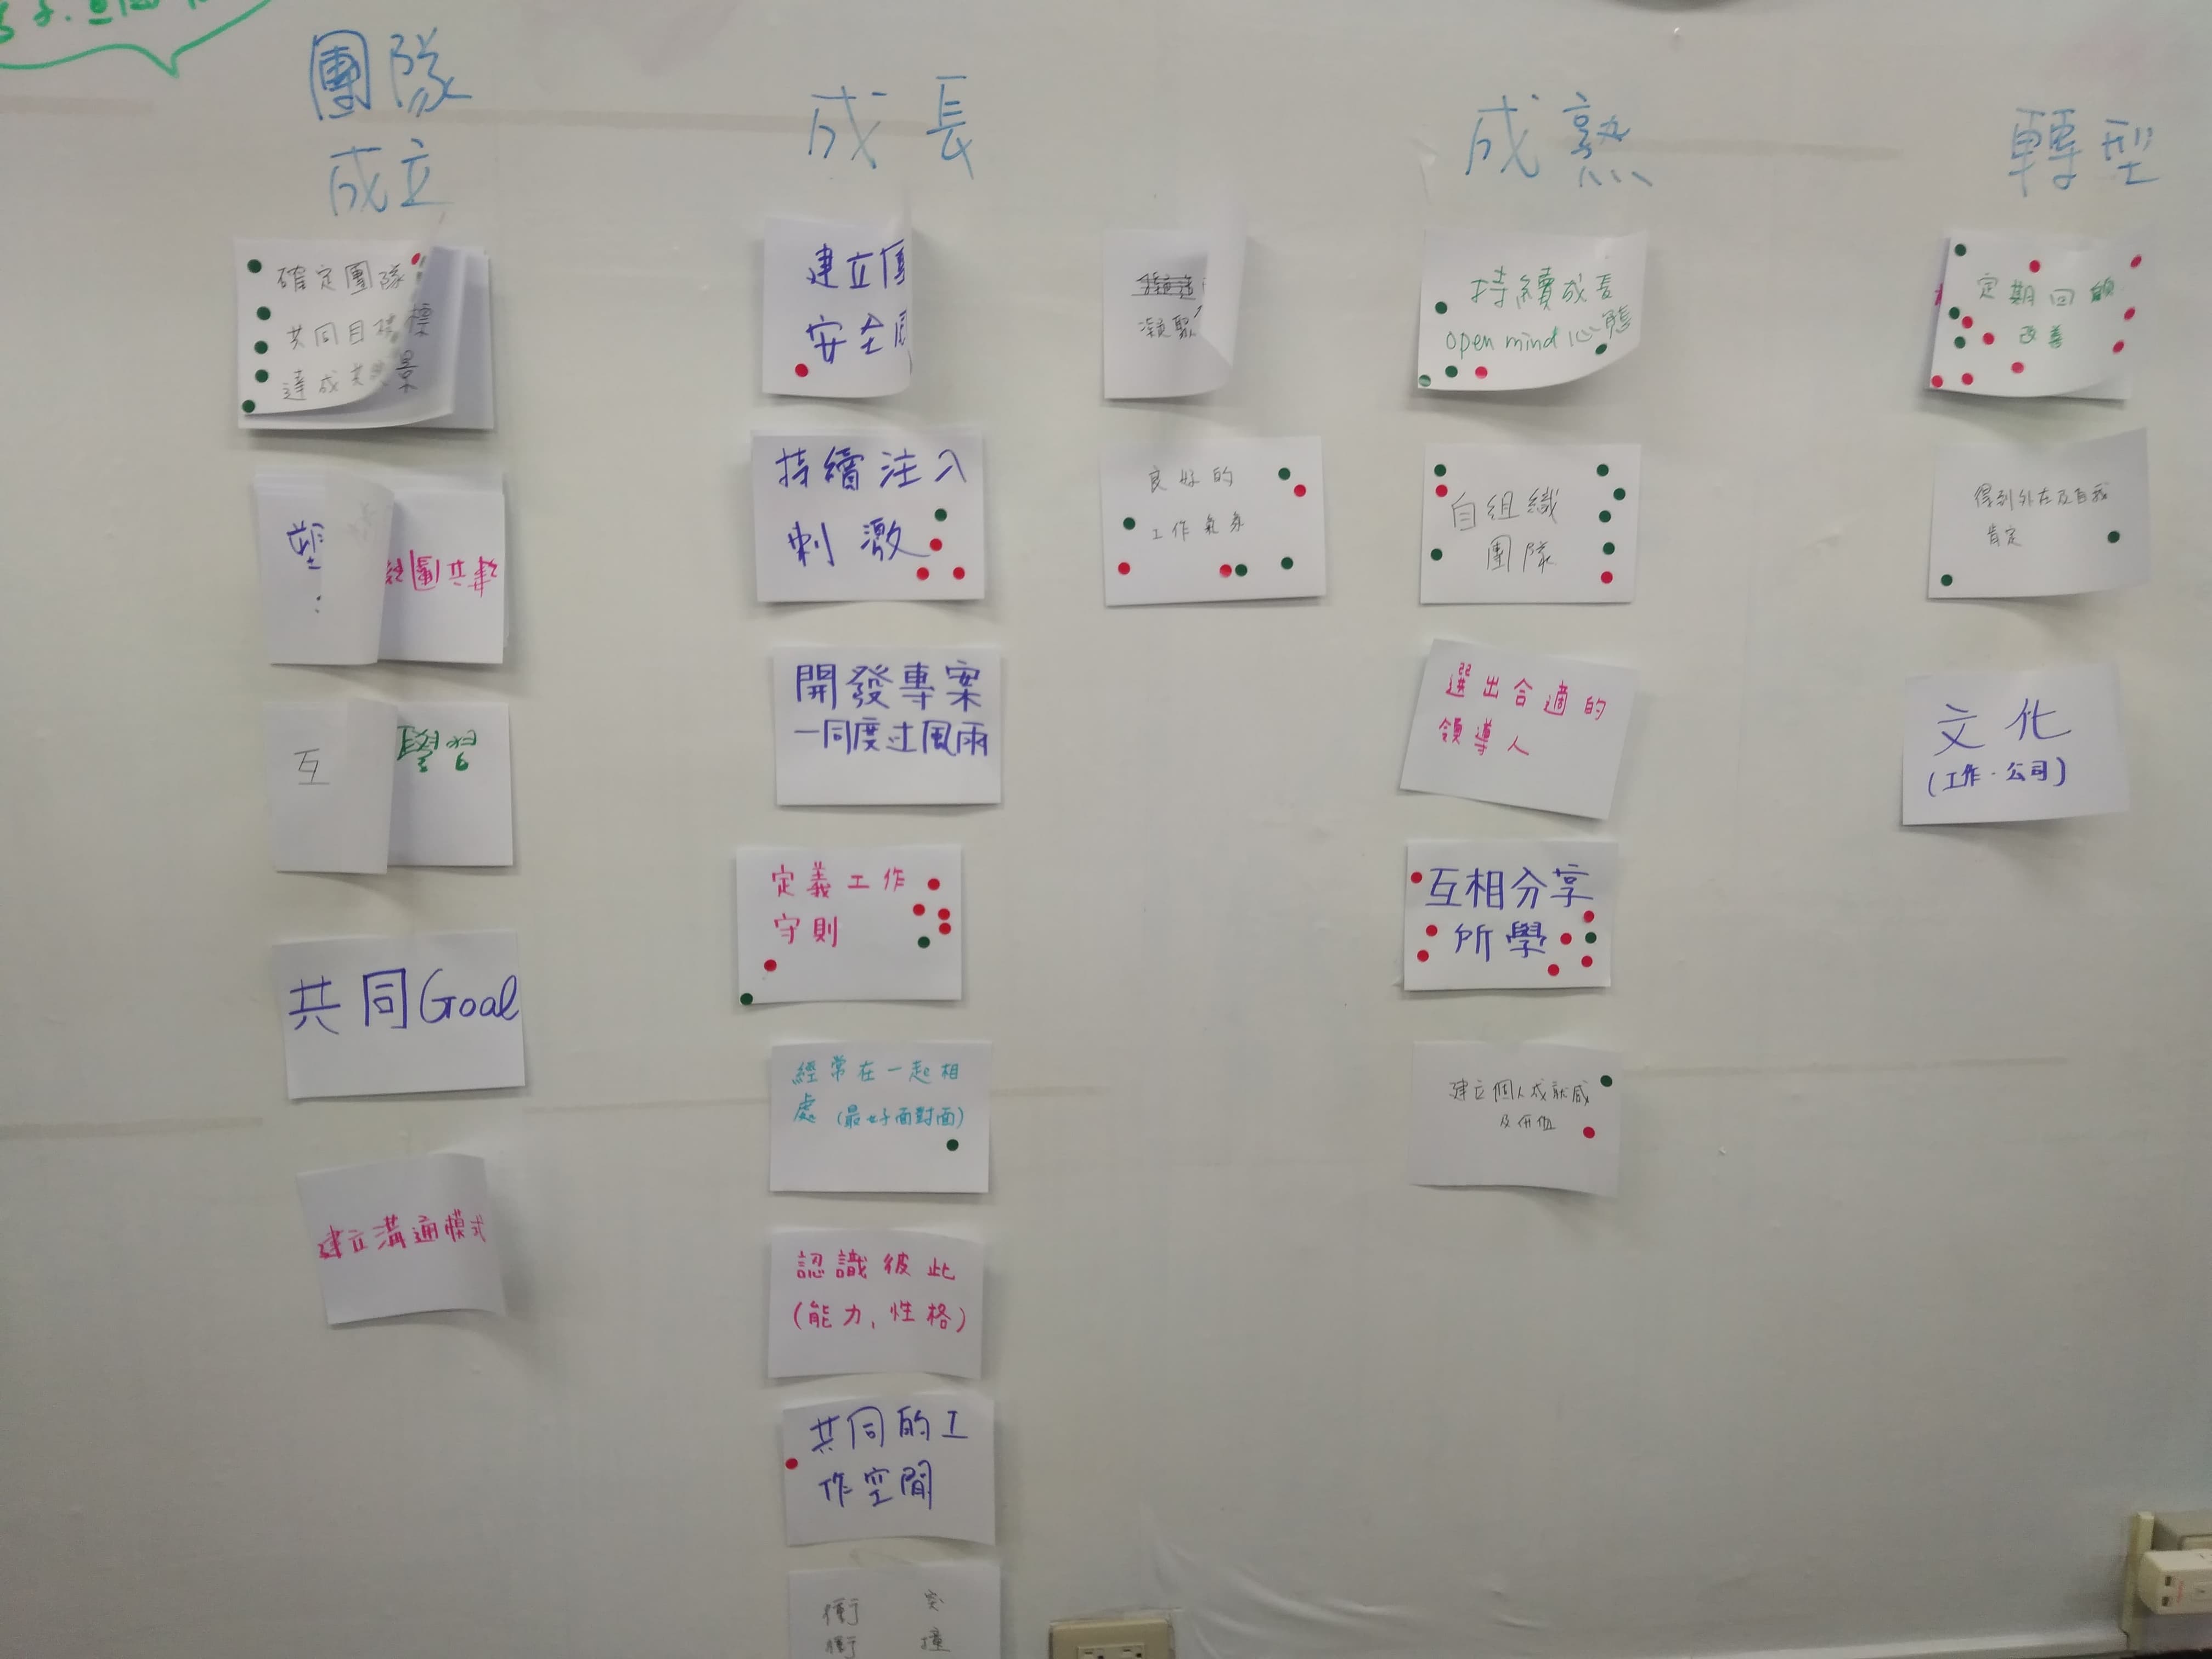 團隊
成立
確定團隊
共同目標
達成
景
塑
共
互
學習
共同Goal
建立溝通模式
成長
建立團
安全
持續注入
刺激
開發專案
一同度过風雨
定義工作
守則
經常在一起相
處(最好面對面)
認識彼此
(能力,性格)
共同的工
作空間
衝突
衝撞
凝聚
良好的
工作氣氛
成熟
持續成長
open mind 心態
自組織
團隊
選出合適的
領導人
互相分享
所學
建立個人成就感
及價值
轉型
定期回顧
改善
得到外在及自我
肯定
文化
(工作·公司)